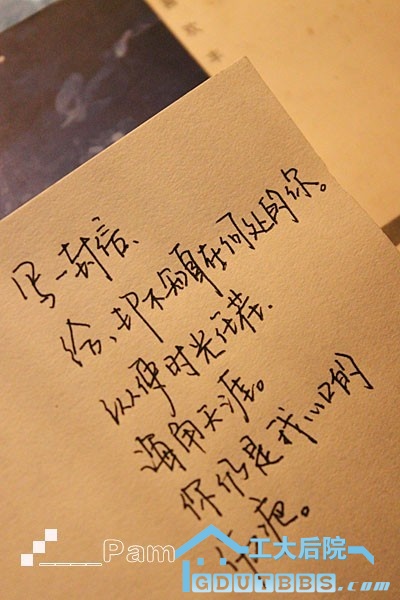 写一封信、
给、却不知身在何处的你。
纵使时光荏苒、
海角天涯。
你仍是我心口的
伤疤。
____Pam
工大后院
GDUTBBS.COM